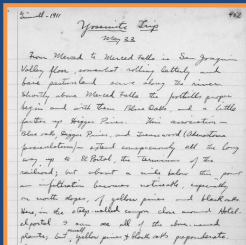 Grinnell - 1911
Yosemite Trip
May 22
From Merced to Merced Falls is San Joaquin
Valley floor, somewhat rolling latterly and
fine pasture land along the river.
Shortly above Merced Falls the foothills proper
begin and with them Blue Oaks and a little
farther up Digger Pines. This association -
Blue oaks, Digger Pines, and
extend uninterruptedly all the long
way up to El Portal, the terminus of the
railroad; but about a mile below this point
an infiltration becomes noticeable, especially
on north slopes, of yellow pines and black oaks.
Here, in the steep-walled canyon close around Hotel
el portal I saw all of the above-named
plants, but yellow pines & black oaks preponderate.